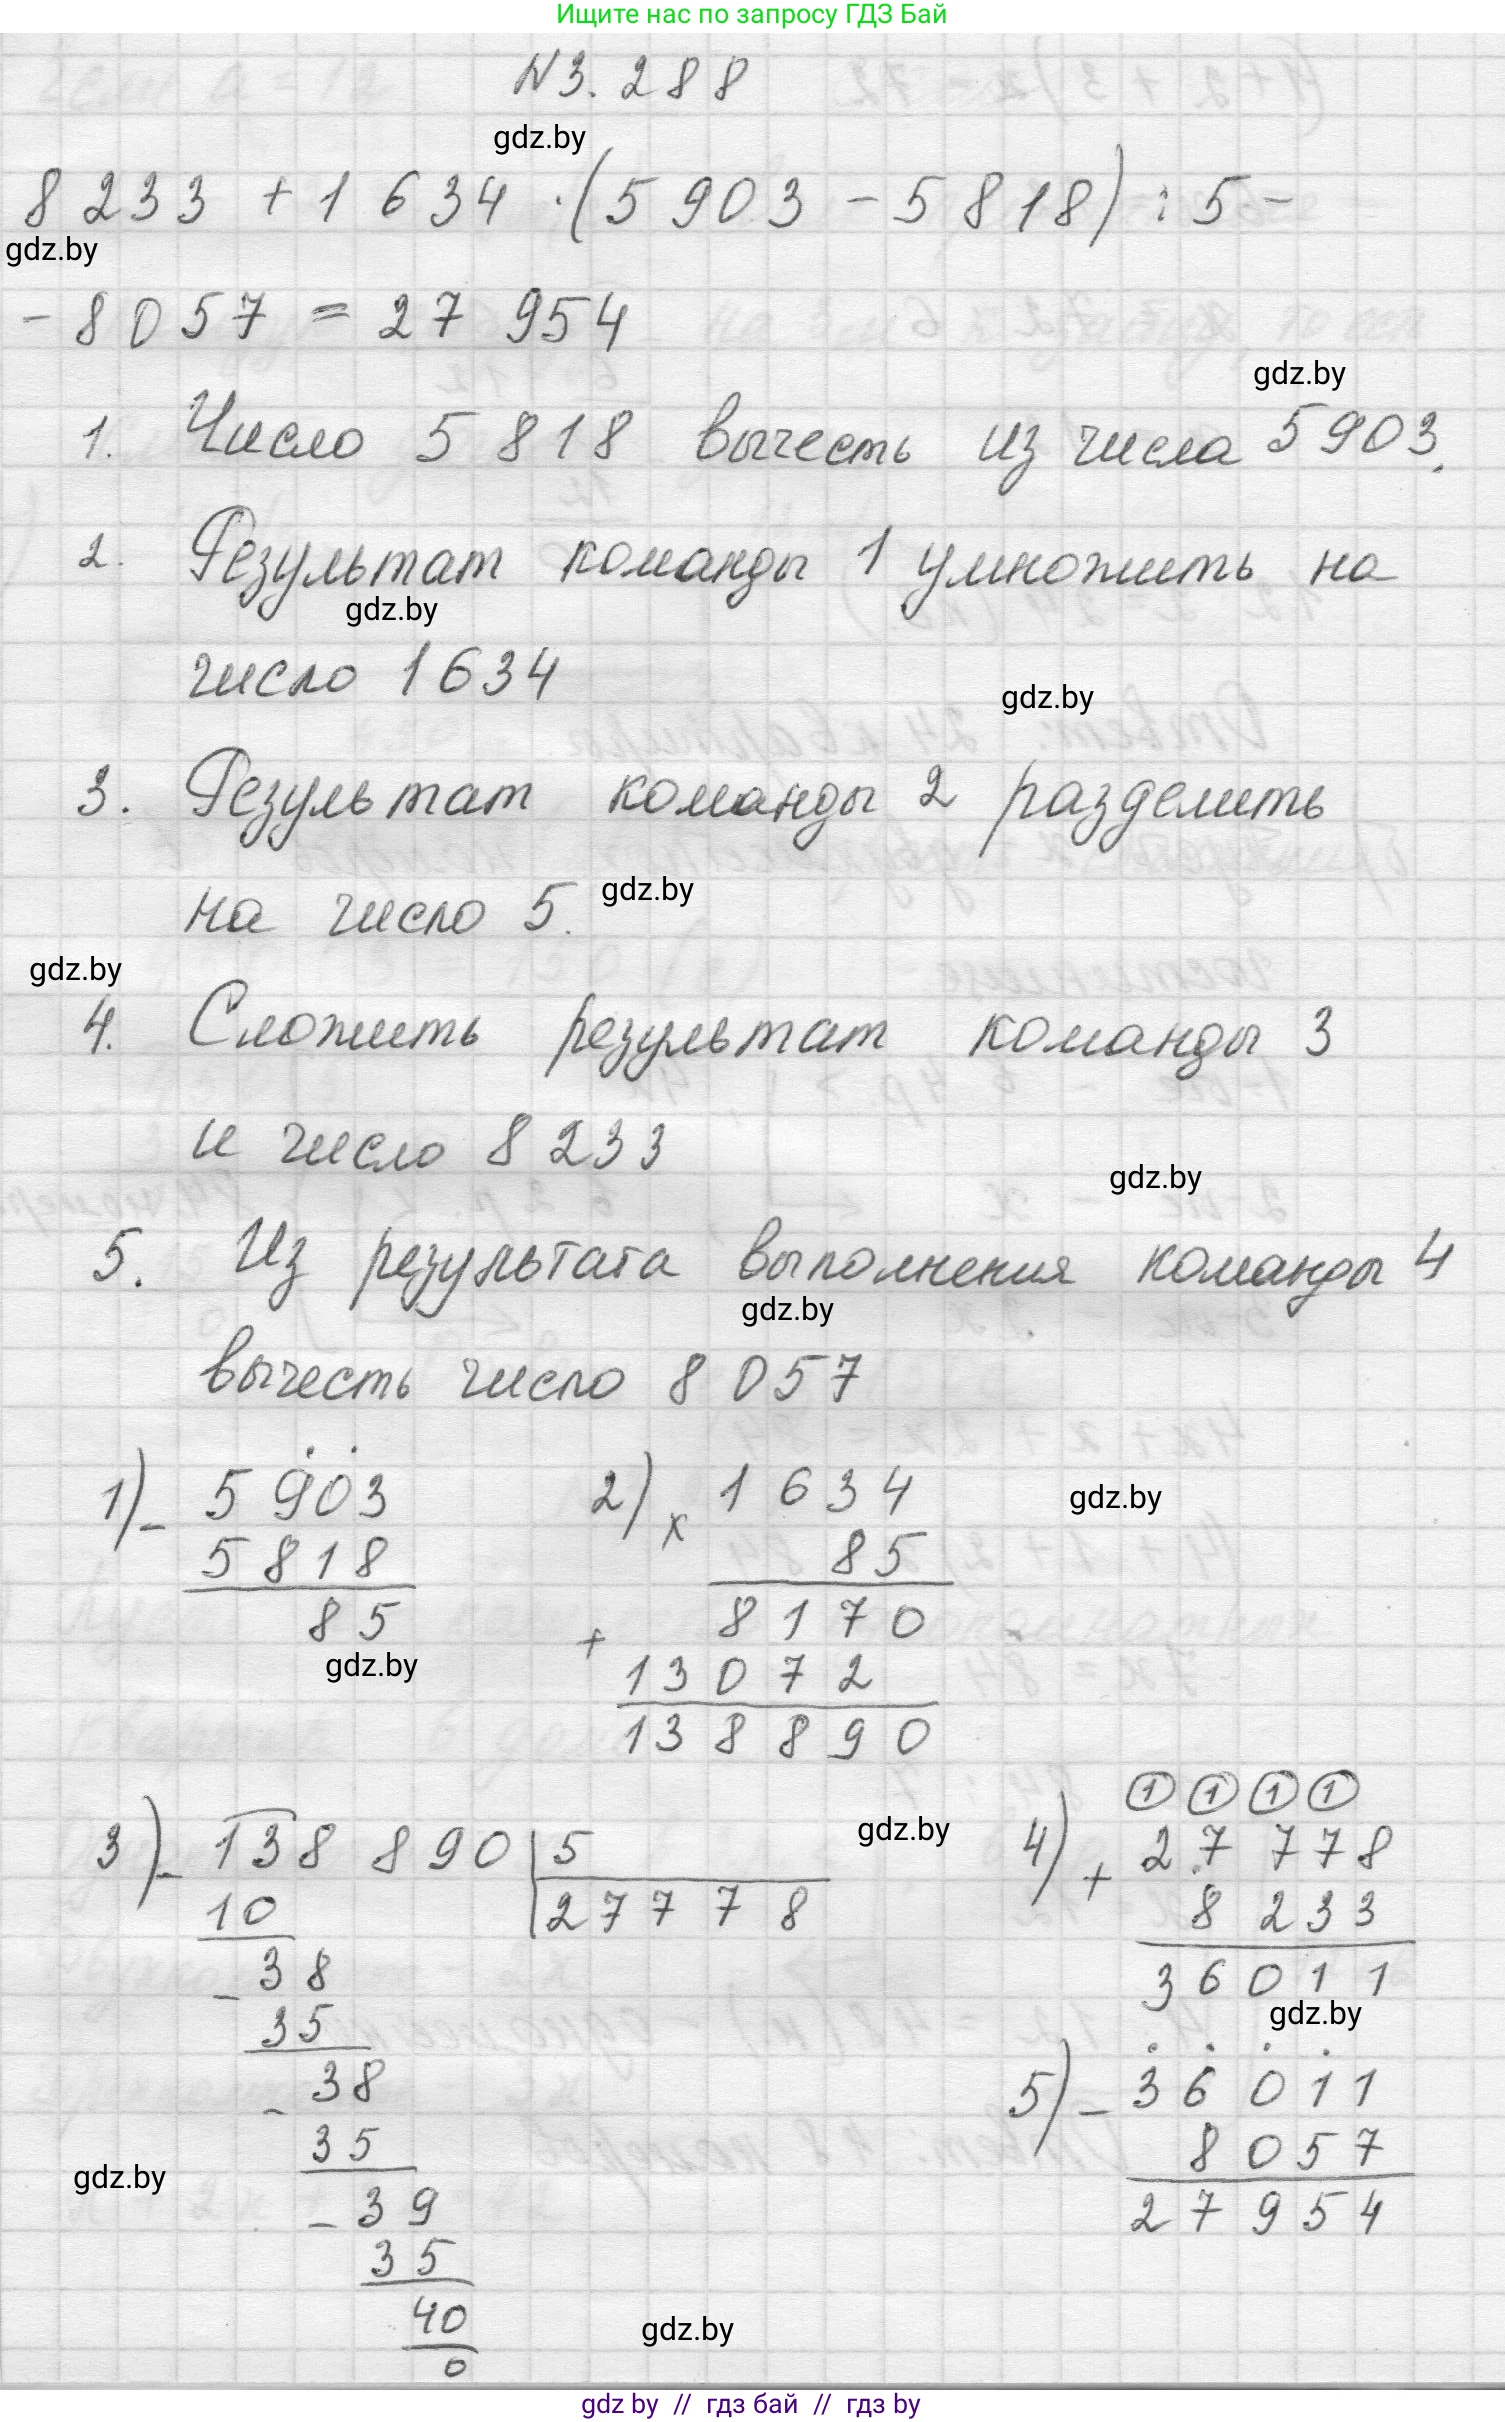 Ищите нас по запросу ГДЗ Бай
N3.288
gdz.by
8 233 + 1 634 · (5 903 - 5 818) : 5 -
gdz.by
- 8 057 = 27 954
gdz.by
1. Число 5 818 вычесть из числа 5903.
2. Результат команды 1 умножить на
gdz.by
число 1634
gdz.by
3. Результат команды 2 разделить
на число 5.
gdz.by
gdz.by
4. Сложить результат команды 3
и число 8 233
gdz.by
5. Из результата выполнения команды 4
gdz.by
вычесть число 8 057
1) - 5 903
5 818
85
gdz.by
2) x 1 634
85
+ 8 1 7 0
13 0 7 2
13 8 8 9 0
gdz.by
3) - 138 890 | 5
10 | 27 7 7 8
- 38
35
- 38
35
- 39
35
40
0
gdz.by
gdz.by
1 1 1 1
4) + 27 778
8 233
36 011
gdz.by
5) - 36 011
8 057
27 954
gdz.by
gdz by // гдз бай // гдз by